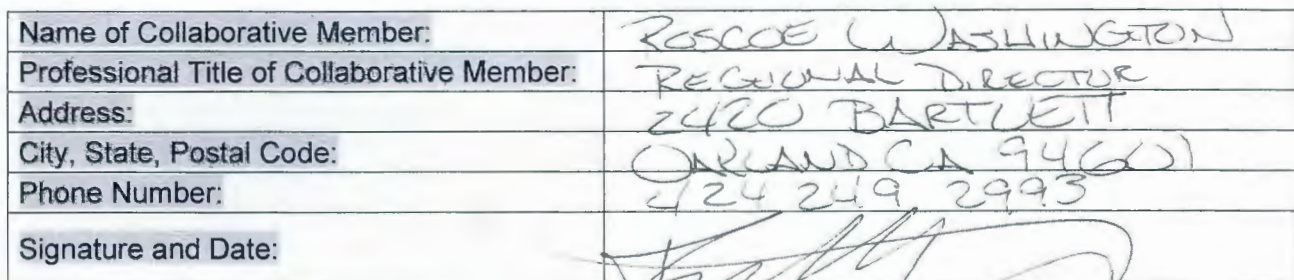 Name of Collaborative Member: ROSCOE WASHINGTON
Professional Title of Collaborative Member: REGIONAL DIRECTOR
Address: 2420 BARTLETT
City, State, Postal Code: OAKLAND CA 94601
Phone Number: 424 249 2993
Signature and Date: